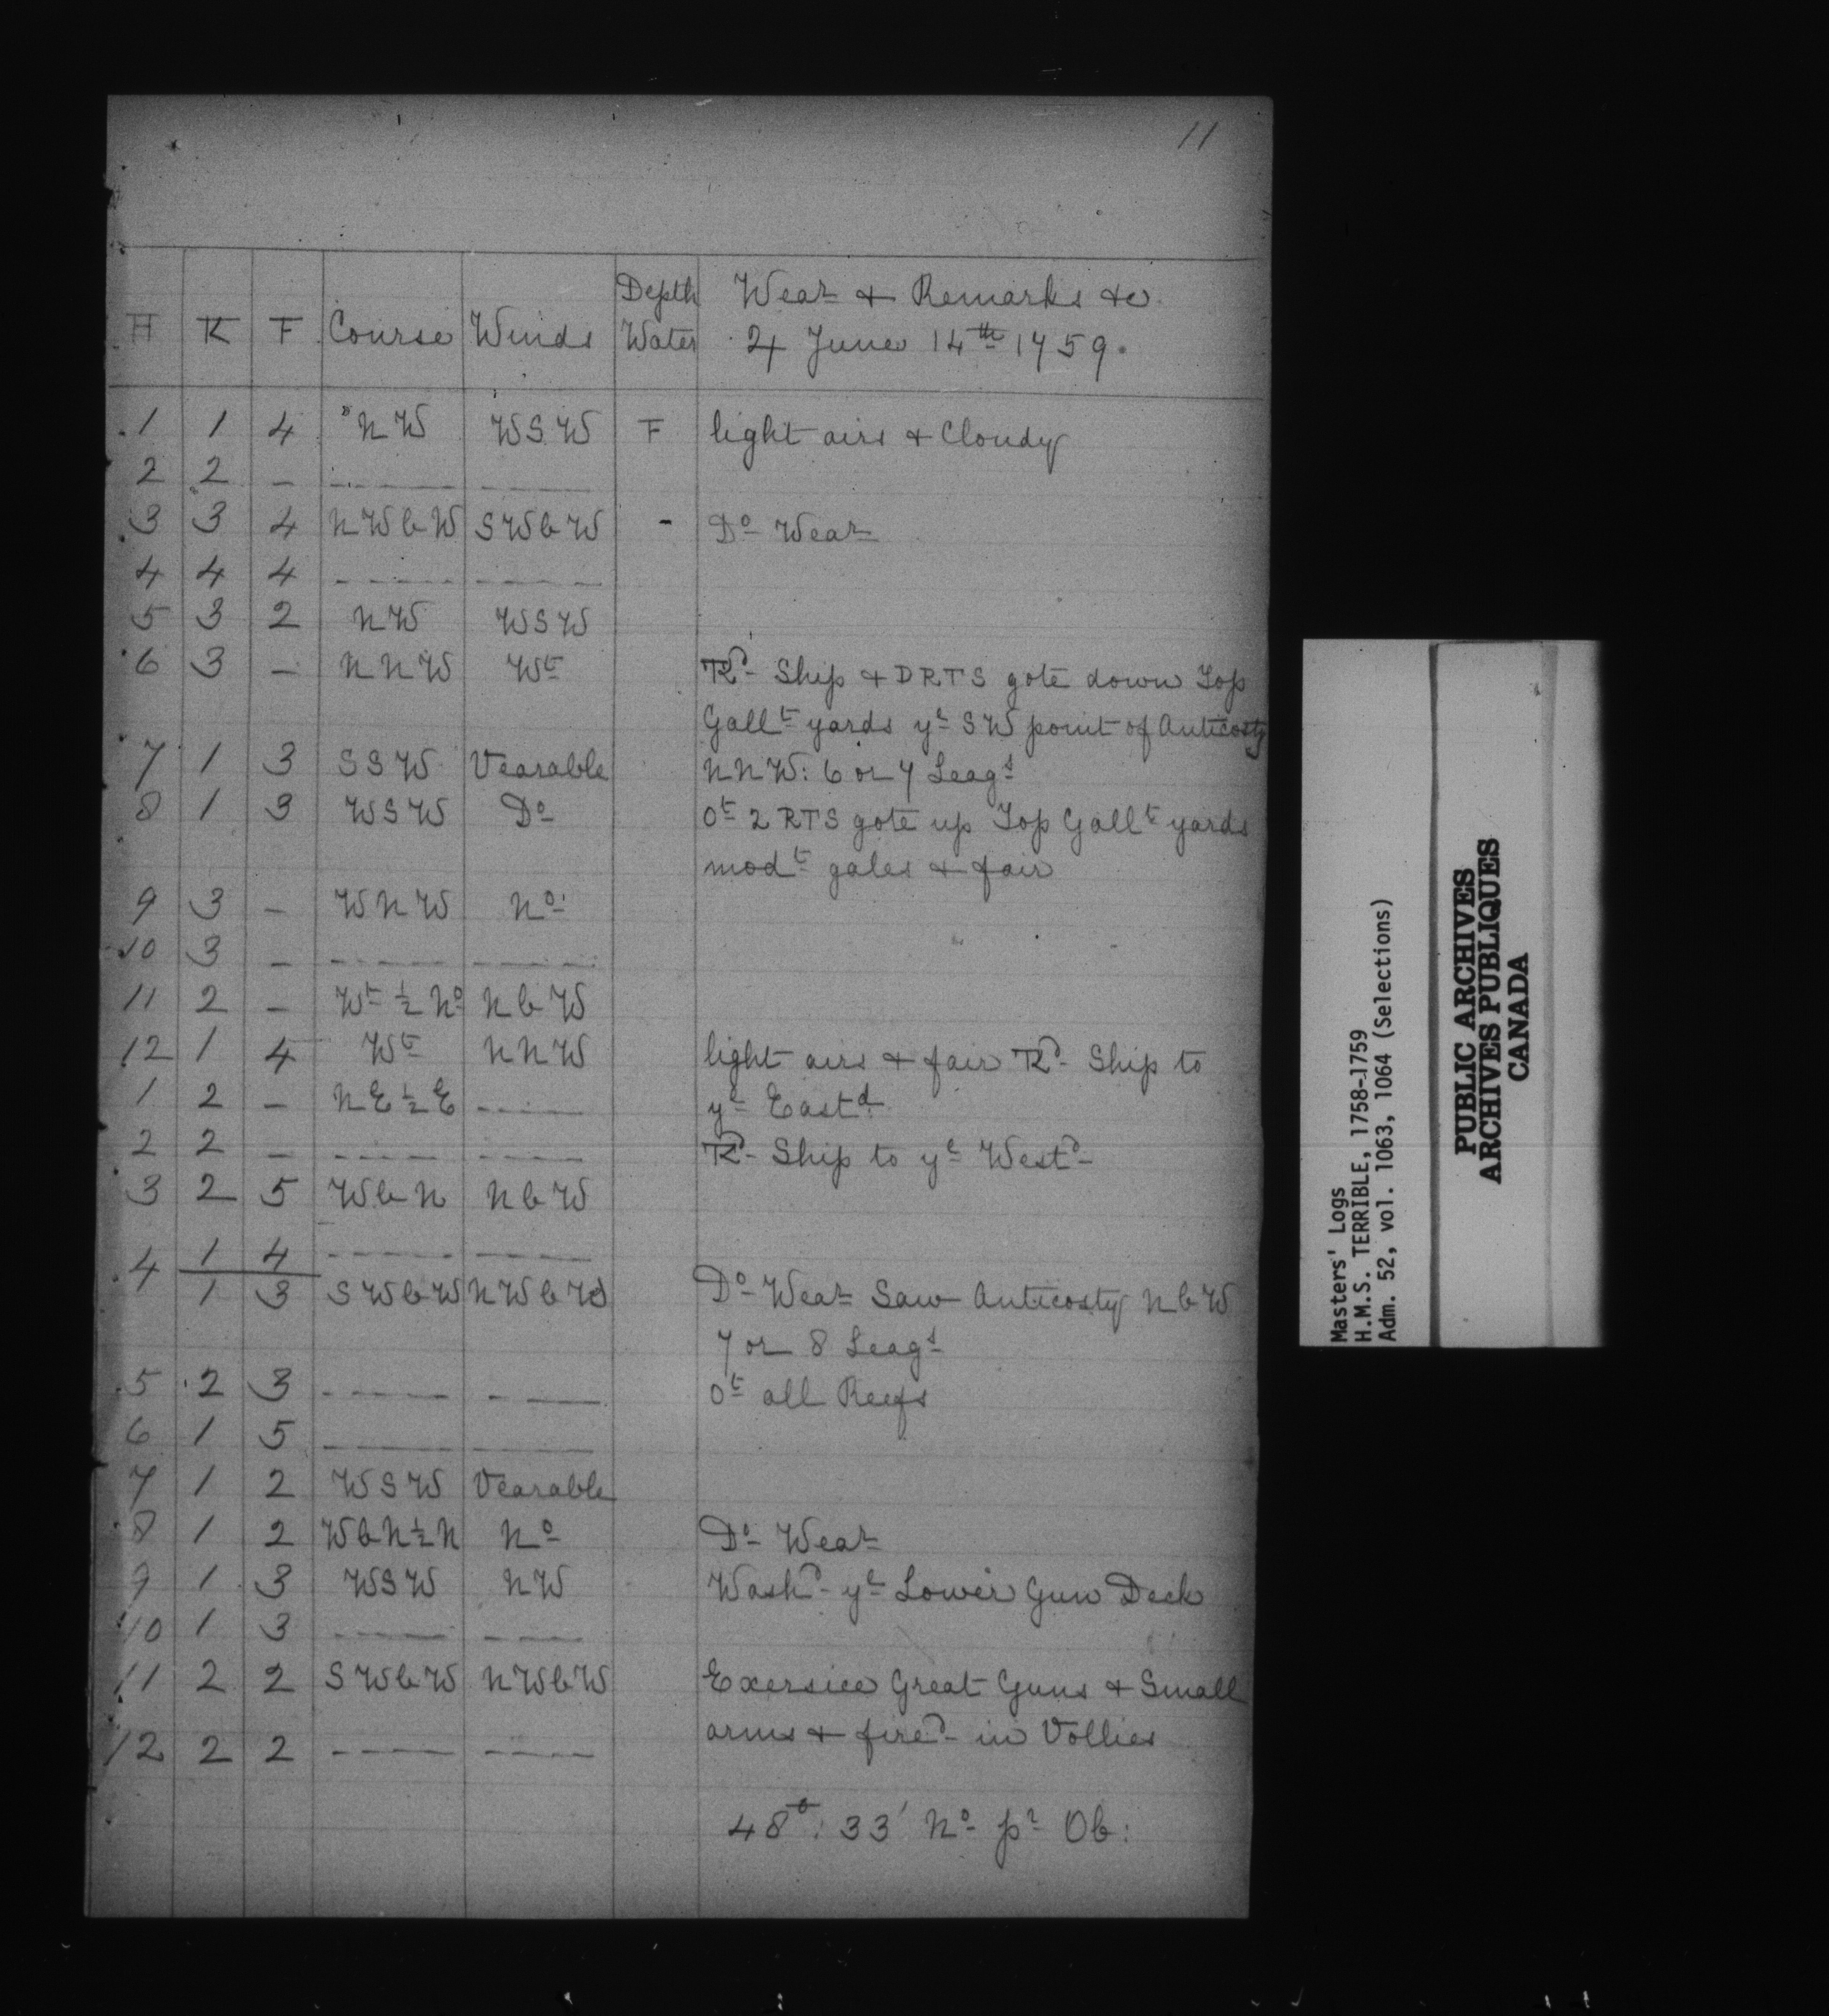 11
Depth Wear & Remarks &c
H K F Course Winds Water 4 June 14th 1759.
1 1 4 NW WSW F light airs & Cloudy
2 2 - ---- ----
3 3 4 NWbW SWbW - Do Wear
4 4 4 ---- ----
5 3 2 NW WSW
6 3 - NNW Wt TKd Ship & DRTS gote down Top
Gallt yards ye SW point of Anticosty
7 1 3 SSW Vearable NNW: 6 or 7 Leags
8 1 3 WSW Do Ot 2 RTS gote up Top Gallt yards
modt gales & fair
9 3 - WNW No
10 3 - ---- ----
11 2 - Wt ½ No NbW
12 1 4 Wt NNW light airs & fair TKd Ship to
1 2 - NE ½ E ---- ye Eastd
2 2 - ---- ---- TKd Ship to ye Westd
3 2 5 WbN NbW
4 1 4 ---- ----
1 3 SWbW NWbW Do Wear Saw Anticosty NbW
7 or 8 Leags
5 2 3 ---- ---- Ot all Reefs
6 1 5 ---- ----
7 1 2 WSW Vearable
8 1 2 WbN½N No Do Wear
9 1 3 WSW NW Washd ye Lower Gun Deck
10 1 3 ---- ----
11 2 2 SWbW NWbW Exersice Great Guns & Small
arms & fired in Vollies
12 2 2 ---- ----
48°: 33' No pr Ob:
Masters' Logs
H.M.S. TERRIBLE, 1758-1759
Adm. 52, vol. 1063, 1064 (Selections)
PUBLIC ARCHIVES
ARCHIVES PUBLIQUES
CANADA